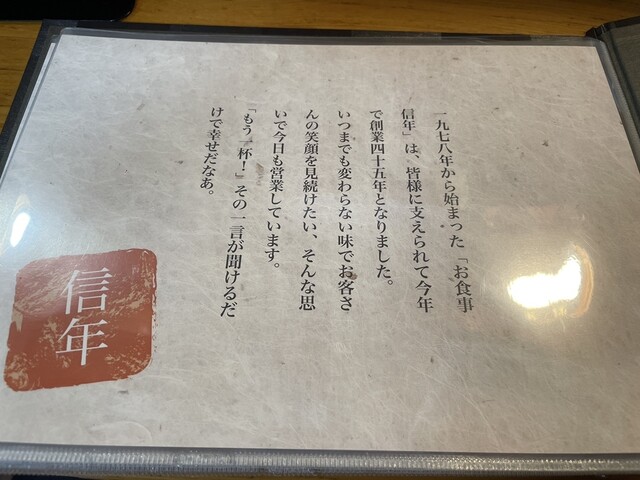 一九七八年から始まった「お食事
信年」は、皆様に支えられて今年
で創業四十五年となりました。
いつまでも変わらない味でお客さ
んの笑顔を見続けたい、そんな思
いで今日も営業しています。
「もう一杯！」その一言が聞けるだ
けで幸せだなあ。
信年